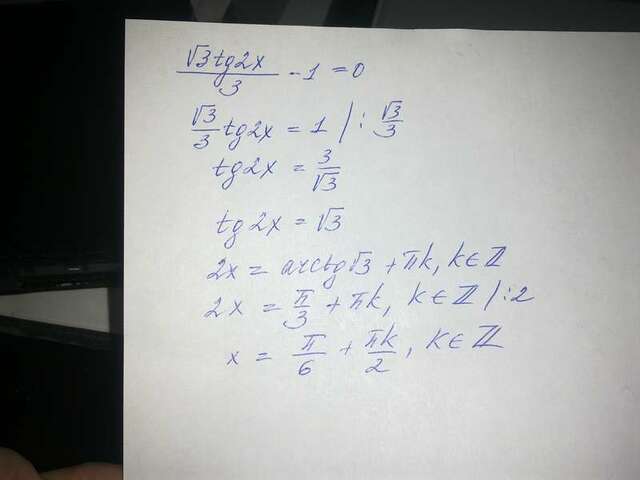 √3tg2x/3 - 1 = 0
√3/3 tg2x = 1 / : √3/3
tg2x = 3/√3
tg2x = √3
2x = arctg√3 + πk, k∈ℤ
2x = π/3 + πk, k∈ℤ /:2
x = π/6 + πk/2, k∈ℤ